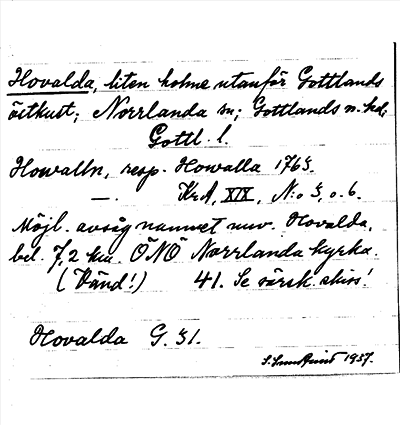 Hovalda, liten holme utanför Gottlands
östkust; Norrlanda sn; Gottlands n. hd;
Gottl. l.
Howalln, resp. Howalla 1765.
—"— KrA, XIX, N:o 5, o. 6.
Möjl. avsåg namnet nuv. Hovalda,
bel. 7,2 km. ÖNÖ Norrlanda kyrka.
(Vänd!) 41. Se särsk. skiss!
Hovalda G. 51.
1937.